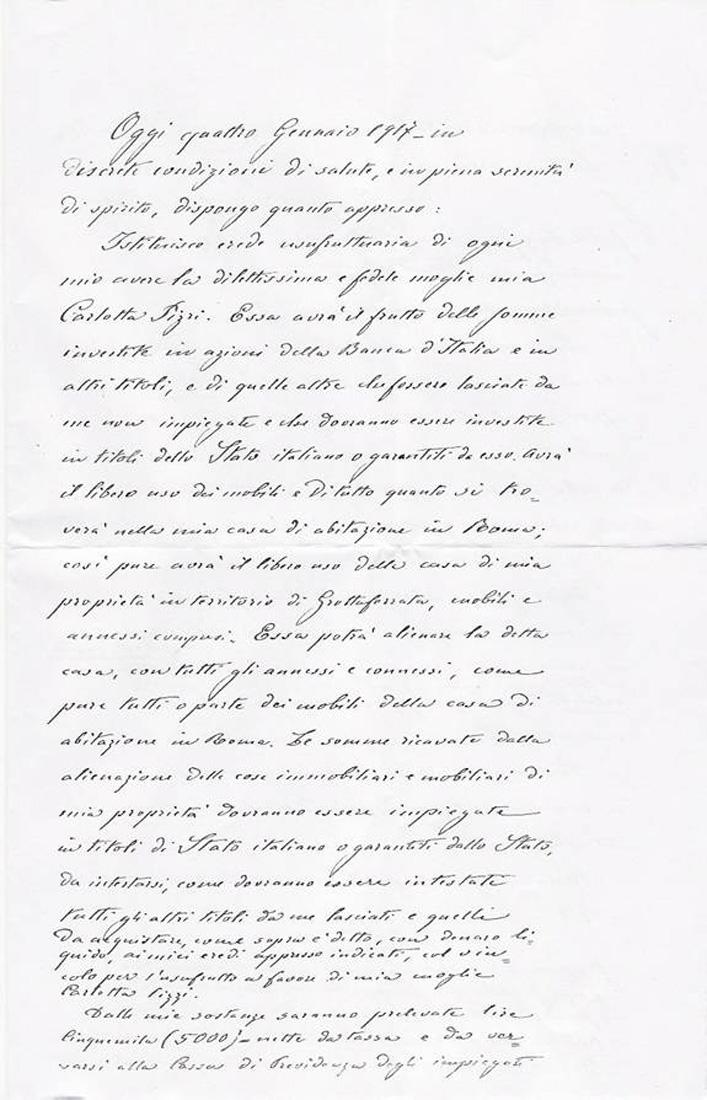 Oggi quattro Gennaio 1917 – in
discrete condizioni di salute, e in piena serenità
di spirito, dispongo quanto appresso:
Istituisco erede usufruttuaria di ogni
mio avere la dilettissima e fedele moglie mia
Carlotta Pizzi. Essa avrà il frutto delle somme
investite in azioni della Banca d'Italia e in
altri titoli, e di quelle altre che fossero lasciate da
me non impiegate e che dovranno essere investite
in titoli dello Stato italiano o garantiti da esso. Avrà
il libero uso dei mobili e di tutto quanto si tro=
verà nella mia casa di abitazione in Roma;
così pure avrà il libero uso della casa di mia
proprietà in territorio di Grottaferrata, mobili e
annessi compresi. Essa potrà alienare la detta
casa, con tutti gli annessi e connessi, come
pure tutti o parte dei mobili della casa di
abitazione in Roma. Le somme ricavate dalla
alienazione delle cose immobiliari e mobiliari di
mia proprietà dovranno essere impiegate
in titoli di Stato italiano o garantiti dallo Stato,
da intestarsi, come dovranno essere intestati
tutti gli altri titoli da me lasciati e quelli
da acquistare, come sopra è detto, con denaro li=
quido, ai miei eredi appresso indicati, col vin=
colo per l'usufrutto a favore di mia moglie
Carlotta Pizzi.
Dalle mie sostanze saranno prelevate lire
Cinquemila (5000) – nette da tassa e da ver=
sarsi alla Cassa di Previdenza degli impiegati